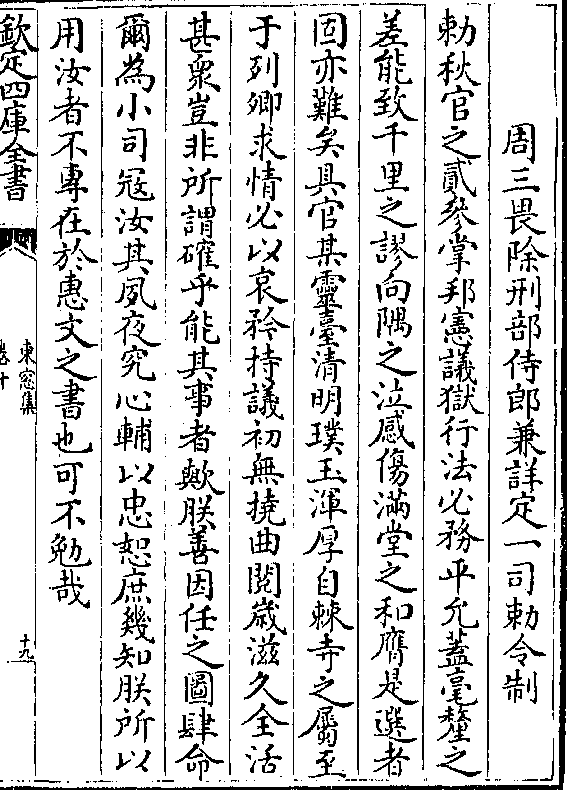 周三畏除刑部侍郎兼詳定一司勅令制
勅秋官之貳叅掌邦憲議獄行法必務平允蓋毫釐之
差能致千里之謬向隅之泣感傷滿堂之和膺是選者
固亦難矣具官某靈臺清明璞玉渾厚自棘寺之屬至
于列卿求情必以哀矜持議初無撓曲閱歳滋久全活
甚衆豈非所謂確乎能其事者歟朕善因任之圖肆命
爾為小司寇汝其夙夜究心輔以忠恕庶幾知朕所以
用汝者不專在於惠文之書也可不勉哉
欽定四庫全書
東窓集
卷十
十九